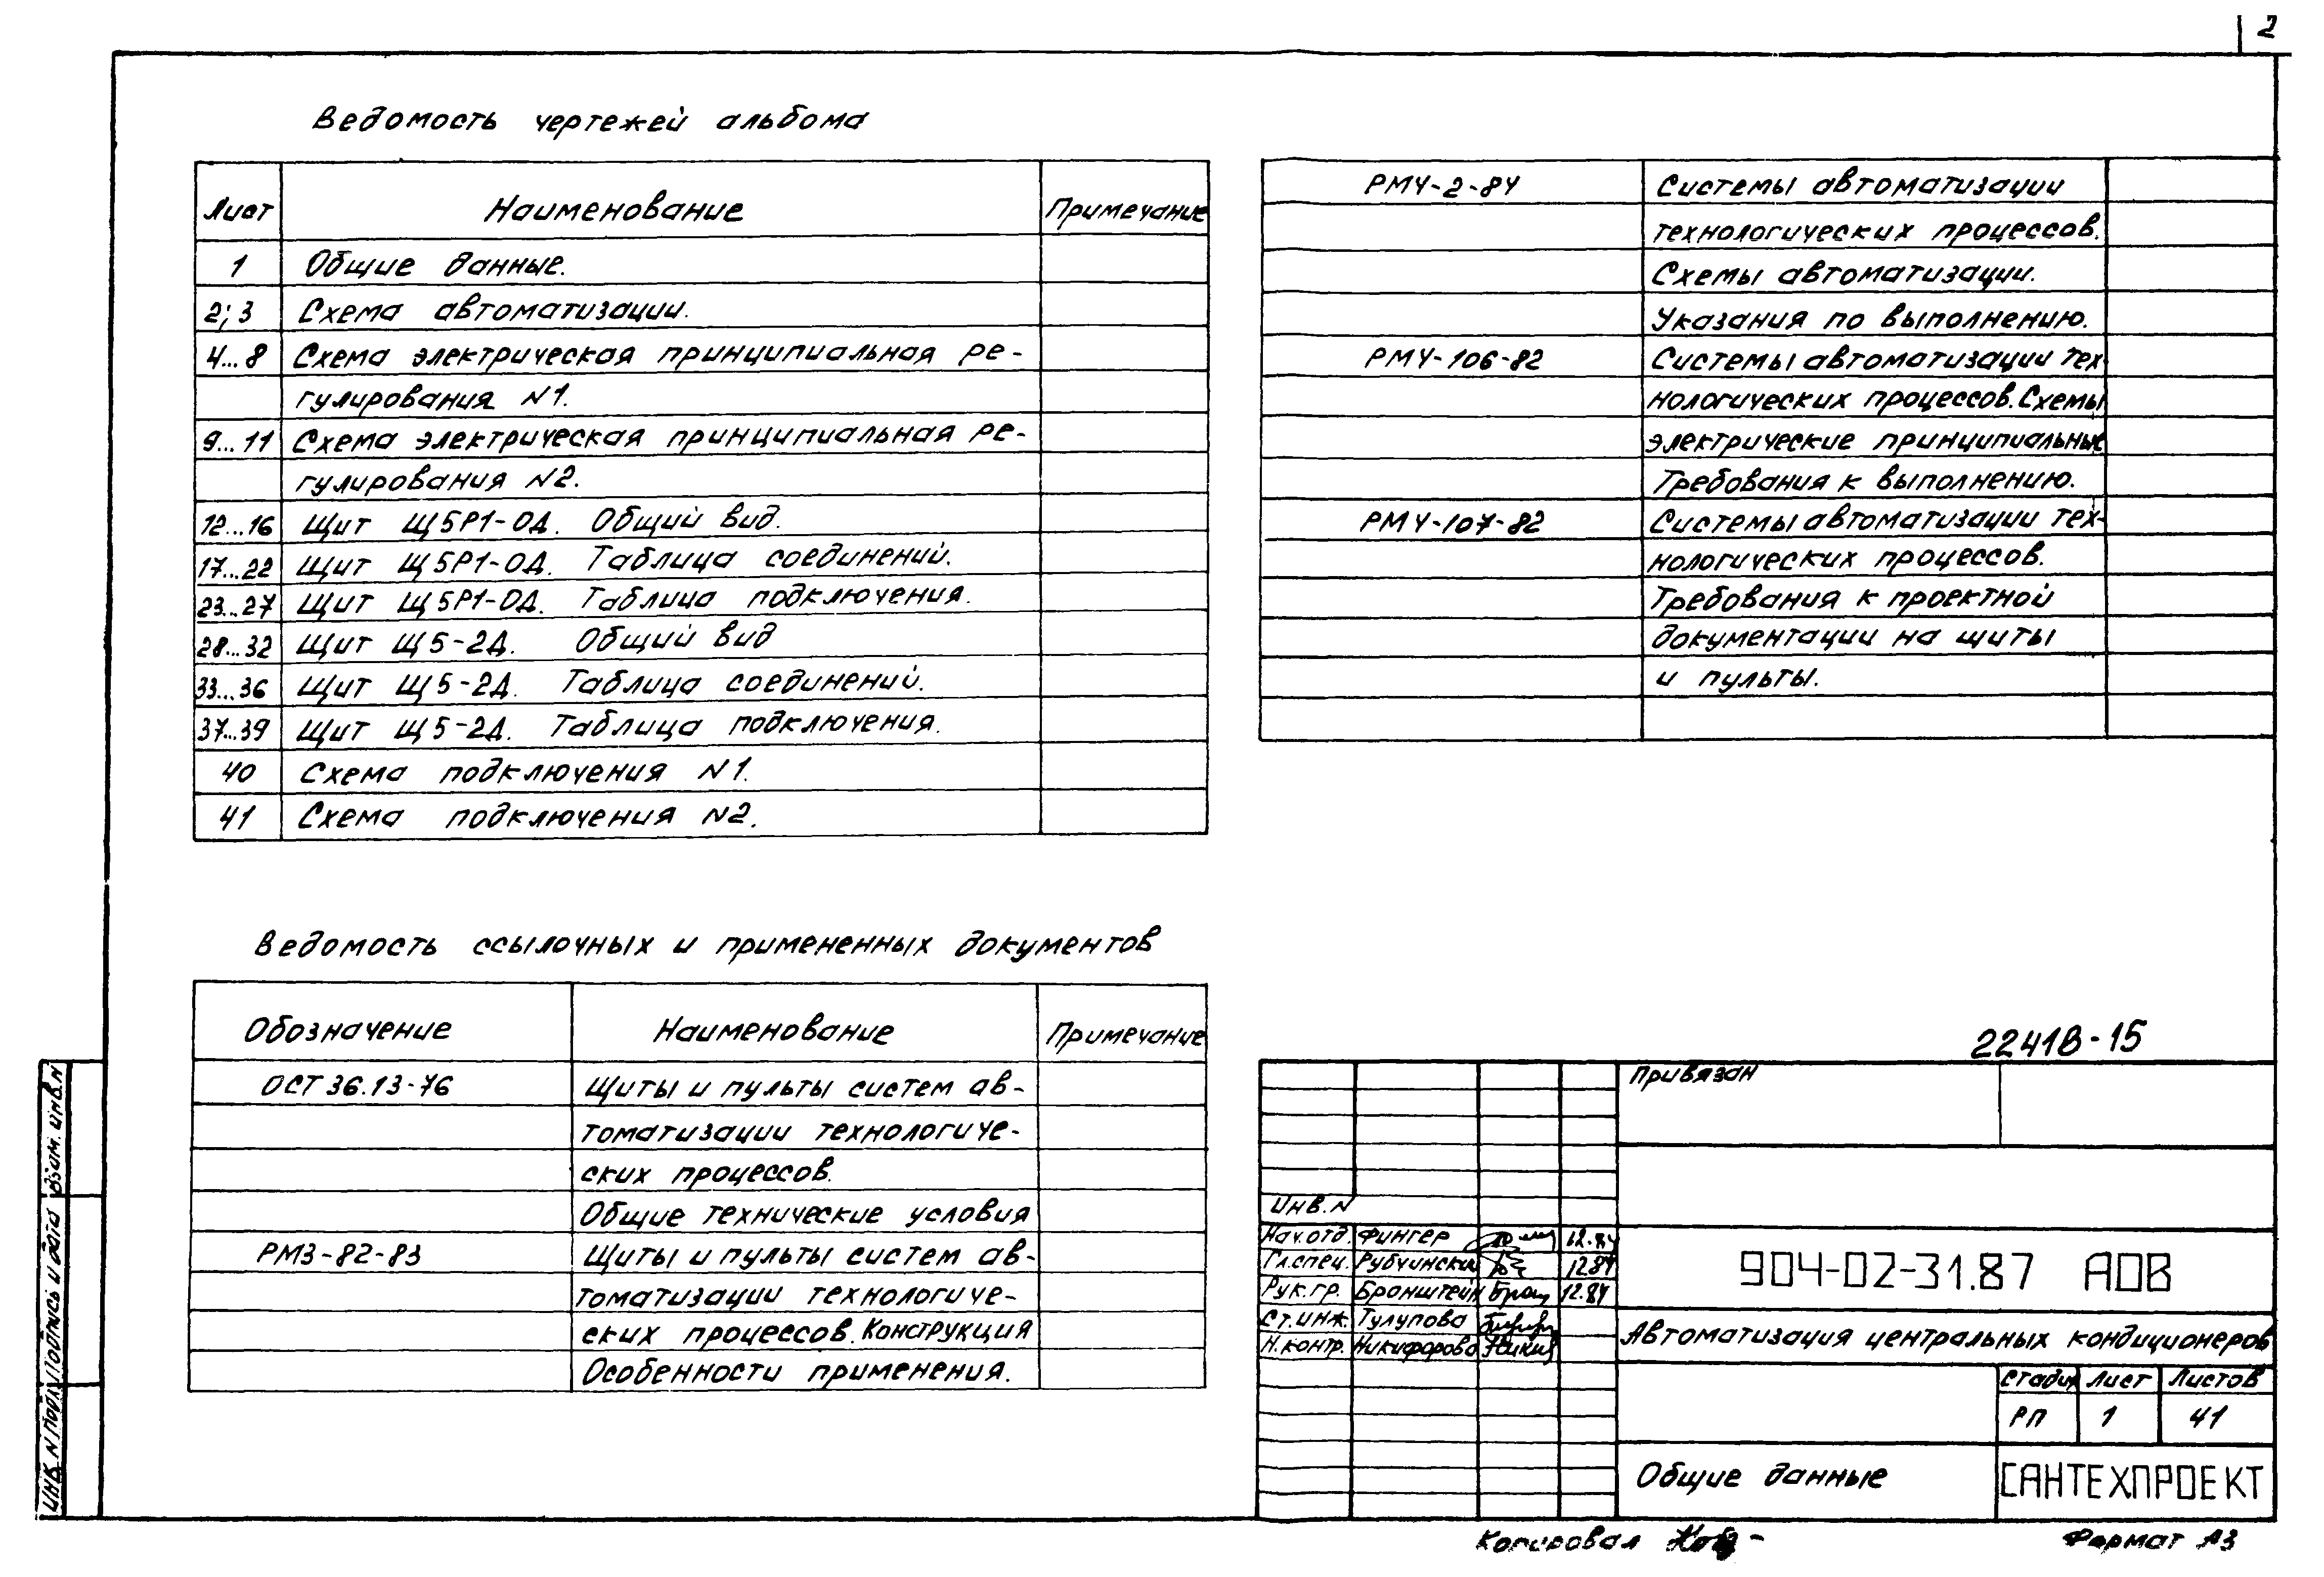 2
Ведомость чертежей альбома
Лист Наименование Примечание
1 Общие данные.
2; 3 Схема автоматизации.
4...8 Схема электрическая принципиальная ре-
гулирования N1.
9...11 Схема электрическая принципиальная ре-
гулирования N2.
12...16 Щит Щ5Р1-0Д. Общий вид.
17...22 Щит Щ5Р1-0Д. Таблица соединений.
23...27 Щит Щ5Р1-0Д. Таблица подключения.
28...32 Щит Щ5-2Д. Общий вид
33...36 Щит Щ5-2Д. Таблица соединений.
37...39 Щит Щ5-2Д. Таблица подключения.
40 Схема подключения N1.
41 Схема подключения N2.
Ведомость ссылочных и примененных документов
Обозначение Наименование Примечание
ОСТ 36.13-76 Щиты и пульты систем ав-
томатизации технологиче-
ских процессов.
Общие технические условия
РМ3-82-83 Щиты и пульты систем ав-
томатизации технологиче-
ских процессов. Конструкция
Особенности применения.
РМ4-2-84 Системы автоматизации
технологических процессов.
Схемы автоматизации.
Указания по выполнению.
РМ4-106-82 Системы автоматизации тех-
нологических процессов. Схемы
электрические принципиальные
Требования к выполнению.
РМ4-107-82 Системы автоматизации тех-
нологических процессов.
Требования к проектной
документации на щиты
и пульты.
22418-15
Привязан
Инв. N
Нач.отд. Фингер 12.84
Гл.спец. Рубчинский 12.84
Рук.гр. Бронштейн 12.84
Ст.инж. Тулупова
Н.контр. Никифорова
904-02-31.87 АОВ
Автоматизация центральных кондиционеров
Стадия Лист Листов
РП 1 41
Общие данные
САНТЕХПРОЕКТ
Копировал
Формат А3
Инв. N подл. Подпись и дата Взам. инв. N